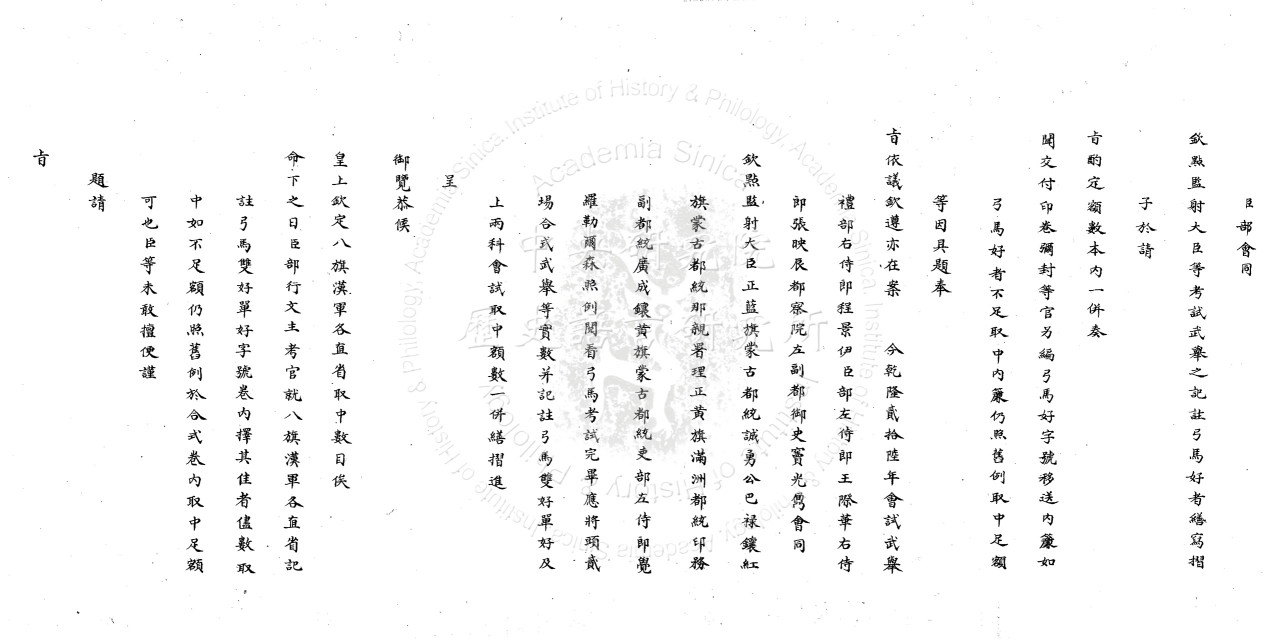 臣部會同
欽點監射大臣等考試武舉之記註弓馬好者繕寫摺
子於請
旨酌定額數本內一併奏
聞交付印卷彌封等官另編弓馬好字號移送內簾如
弓馬好者不足取中內簾仍照舊例取中足額
等因具題奉
旨依議欽遵亦在案 今乾隆貳拾陸年會試武舉
禮部右侍郎程景伊臣部左侍郎王際華右侍
郎張映辰都察院左副都御史竇光鼐會同
欽點監射大臣正藍旗蒙古都統誠勇公巴祿鑲紅
旗蒙古都統那親署理正黃旗滿洲都統印務
副都統廣成鑲黃旗蒙古都統吏部左侍郎覺
羅勒爾森照例閱看弓馬考試完畢應將頭貳
場合式武舉等實數并記註弓馬雙好單好及
上兩科會試取中額數一併繕摺進
呈
御覽恭候
皇上欽定八旗漢軍各直省取中數目俟
命下之日臣部行文主考官就八旗漢軍各直省記
註弓馬雙好單好字號卷內擇其佳者儘數取
中如不足額仍照舊例於合式卷內取中足額
可也臣等未敢擅便謹
題請
旨
中央研究院
歷史語言研究所
Academia Sinica
Institute of History & Philology, Academia Sinica